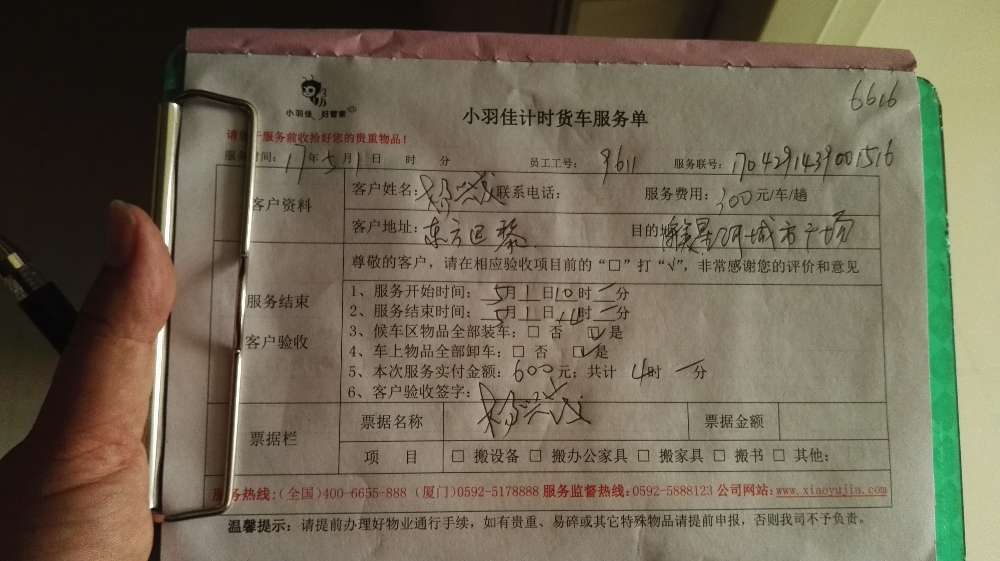 6616
小羽佳 好管家
小羽佳计时货车服务单
请您于服务前收拾好您的贵重物品!
服务时间: 17年5月1日 时 分 员工工号: 9611 服务联号: 1704291439001516
客户资料
客户姓名: 杨 联系电话: 服务费用: 300元/车/趟
客户地址: 东方巴黎 目的地: 城市广场
尊敬的客户,请在相应验收项目前的“□”打“√”,非常感谢您的评价和意见
服务结束
客户验收
1、服务开始时间: 5月1日10时一分
2、服务结束时间: 5月1日14时一分
3、候车区物品全部装车: □ 否 ☑ 是
4、车上物品全部卸车: □ 否 ☑ 是
5、本次服务实付金额: 600元; 共计 4时一分
6、客户验收签字: 杨
票据栏
票据名称 票据金额
项 目 □ 搬设备 □ 搬办公家具 □ 搬家具 □ 搬书 □ 其他:
服务热线:(全国)400-6655-888 (厦门)0592-5178888 服务监督热线:0592-5888123 公司网站:www.xiaoyujia.com
温馨提示: 请提前办理好物业通行手续,如有贵重、易碎或其它特殊物品请提前申报,否则我司不予负责。